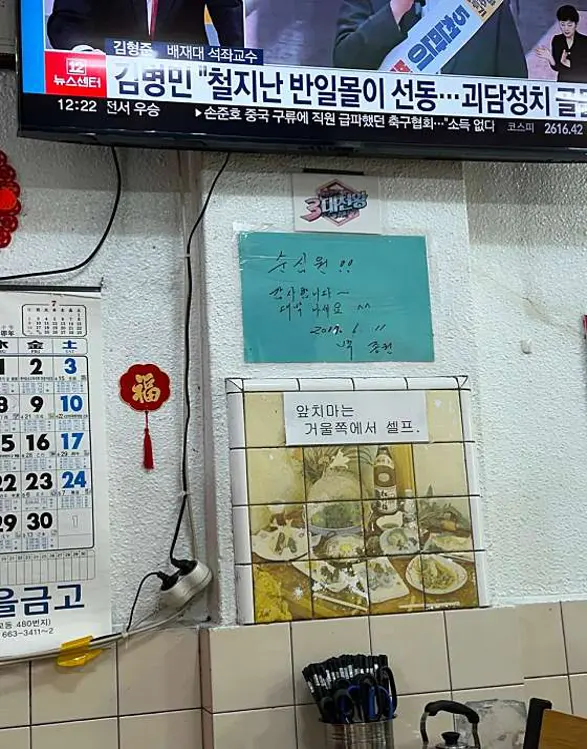 김형준 배재대 석좌교수
12
뉴스센터
김병민 "철지난 반일몰이 선동…괴담정치 골몰
12:22 전서 우승 ▶손준호 중국 구류에 직원 급파했던 축구협회…"소득 없다 코스피 2616.42
3대천왕
순심원 !!
감사합니다~
대박 나세요 ^^
6. 11
앞치마는
거울쪽에서 셀프.
福
7
水 金 土
2 3
8 9 10
15 16 17
22 23 24
29 30 1
을금고
480번지)
663-3411~2